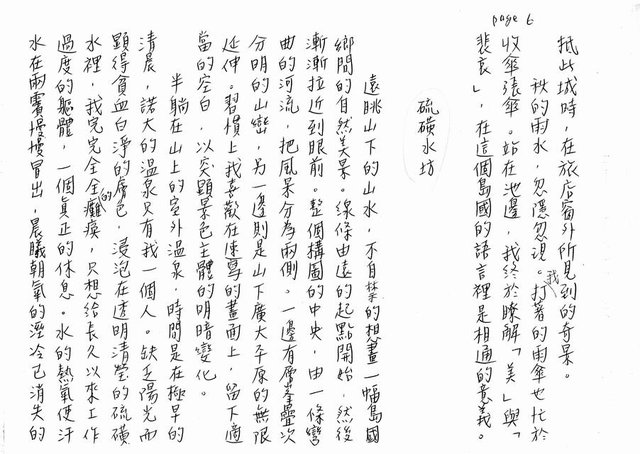 page 6
抵此城時，在旅店窗外所見到的奇景。
秋的雨水，忽隱忽現。我打著的雨傘也忙於
收傘張傘。站在池邊，我終於瞭解「美」與「
悲哀」，在這個島國的語言裡是相通的意義。
硫磺水坊
遠眺山下的山水，不自禁的想畫一幅島國
鄉間的自然美景。線條由遠的起點開始，然後
漸漸拉近到眼前。整個構圖的中央，由一條彎
曲的河流，把風景分為兩側。一邊有層峯疊次
分明的山巒，另一邊則是山下廣大平原的無限
延伸。習慣上我喜歡在速寫的畫面上，留下適
當的空白，以突顯景色主體的明暗變化。
半躺在山上的室外溫泉，時間是在極早的
清晨，諾大的溫泉只有我一個人。缺乏陽光而
顯得貧血白淨的膚色，浸泡在透明清瑩的硫磺
水裡，我完完全全的癱瘓，只想給長久以來工作
過度的軀體，一個真正的休息。水的熱氣使汗
水在兩鬢擾擾冒出，晨曦朝氣的溼冷已消失的